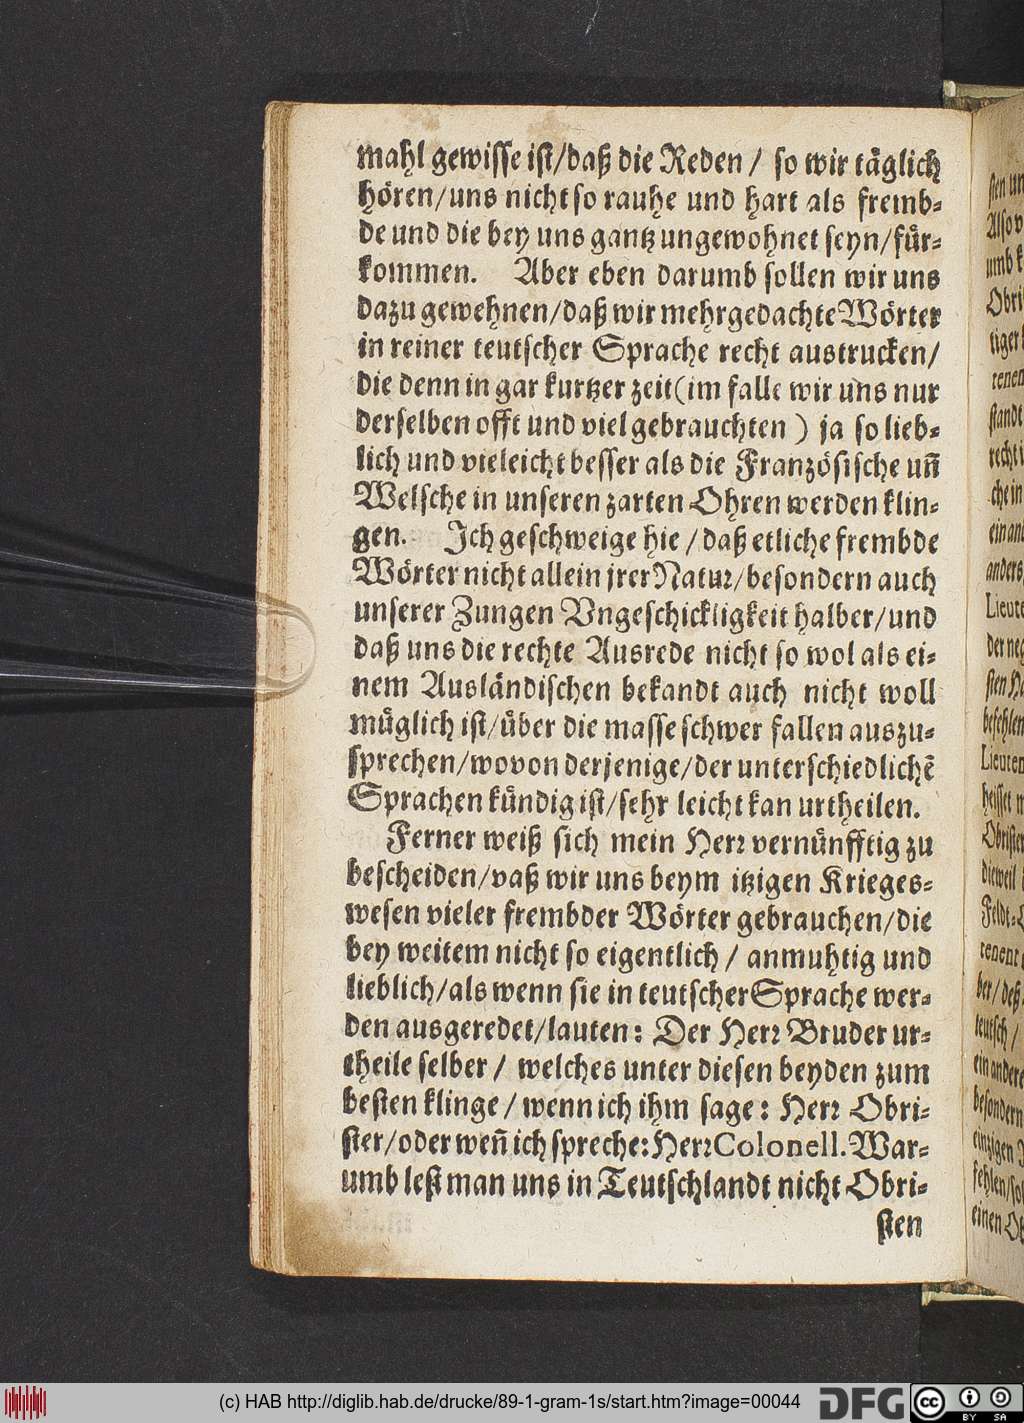 mahl gewisse ist/daß die Reden / so wir täglich
hören/uns nicht so rauhe und hart als fremb-
de und die bey uns gantz ungewohnet seyn/für-
kommen. Aber eben darumb sollen wir uns
dazu gewehnen/daß wir mehrgedachte Wörter
in reiner teutscher Sprache recht austrucken/
die denn in gar kurtzer zeit(im falle wir uns nur
derselben offt und viel gebrauchten ) ja so lieb-
lich und vieleicht besser als die Französische uñ
Welsche in unseren zarten Ohren werden klin-
gen. Ich geschweige hie / daß etliche frembde
Wörter nicht allein jrer Natur/besondern auch
unserer Zungen Vngeschickligkeit halber/und
daß uns die rechte Ausrede nicht so wol als ei-
nem Ausländischen bekandt auch nicht woll
müglich ist/über die masse schwer fallen auszu-
sprechen/wovon derjenige/der unterschiedlichẽ
Sprachen kündig ist/sehr leicht kan urtheilen.
Ferner weiß sich mein Herr vernünfftig zu
bescheiden/daß wir uns beym itzigen Krieges-
wesen vieler frembder Wörter gebrauchen/die
bey weitem nicht so eigentlich / anmuhtig und
lieblich/als wenn sie in teutscher Sprache wer-
den ausgeredet/lauten: Der Herr Bruder ur-
theile selber / welches unter diesen beyden zum
besten klinge / wenn ich ihm sage: Herr Obri-
ster/oder weñ ich spreche: Herr Colonell. War-
umb lest man uns in Teutschlandt nicht Obri-
sten
sten
Also
Obri
tiger
tenen
standt
recht
che in
ein and
anders
Lieute
der neg
sten
befehlen
Lieuten
heisset
Obrister
dieweil
Feldt-
tenent
ber/deß
teutsch /
ein andere
besondern
einzigen
fehlen/sol
einen Ob
(c) HAB http://diglib.hab.de/drucke/89-1-gram-1s/start.htm?image=00044
DFG
cc
BY SA